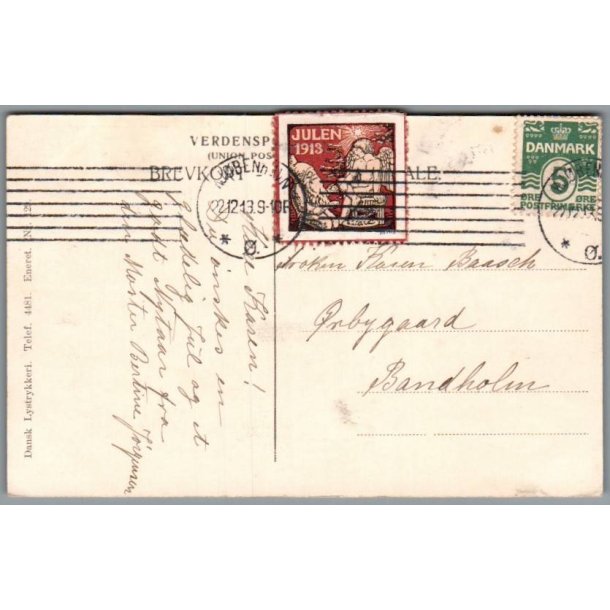 VERDENSP
(UNION POS
BREVKO
ALE.
JULEN
1913
DANMARK
5
ØRE ØRE
POSTFRIMÆRKE
22.12.13.9-10F
* Ø. *
22.12.13
* Ø.
Lille Karen!
Du ønskes en
glædelig Jul og et
godt Nytaar fra
din Moster Bertine Jørgensen
Frøken Karen Baasch
Ørbygaard
Bandholm
Dansk Lystrykkeri. Telef. 4481. Eneret.